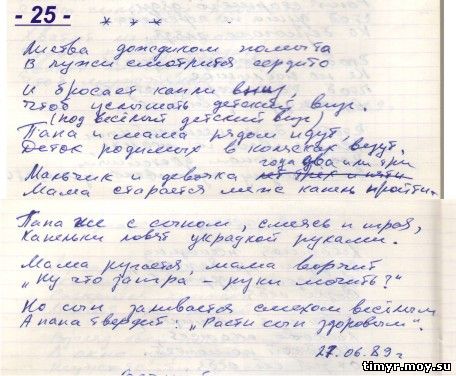 - 25 -
* * *
Листва дождиком помыта
В лужи смотрится сердито
И бросает капли вниз,
Чтоб услышать детский визг.
(под весёлый детский визг)
Папа и мама рядом идут,
Деток родимых в колясках везут.
года два или три
Мальчик и девочка лет трех и пяти
Мама старается меж капель пройти.
Папа же с сыном, смеясь и играя,
Капельки ловят украдкой руками.
Мама ругается, мама ворчит
„Ну что за игра - руки мочить?"
Но сын заливается смехом весёлым
А папа твердит: „Расти сын здоровым".
27.06.89г
timyr.moy.su